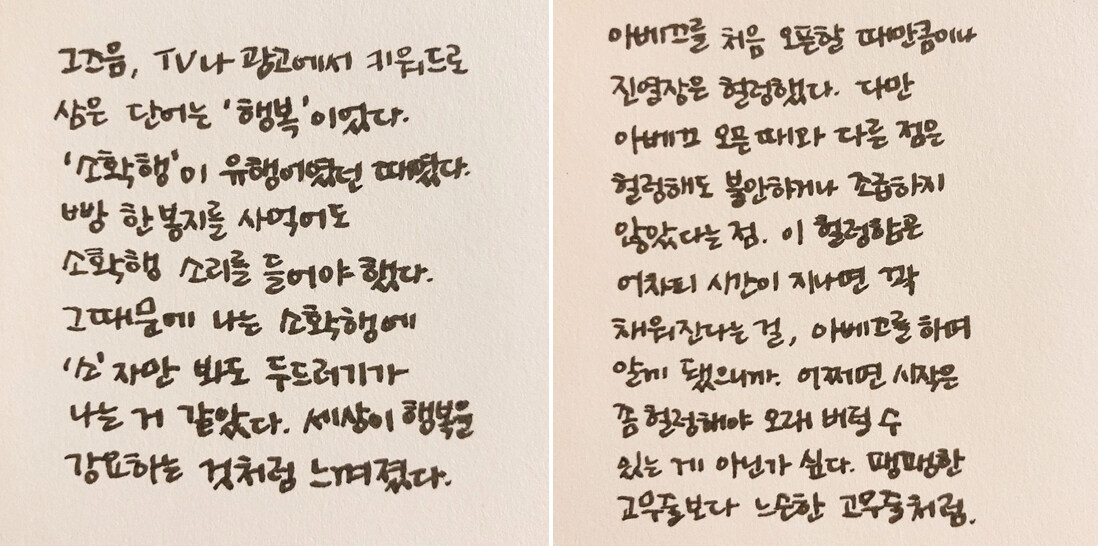 그즈음, TV나 광고에서 키워드로
삼은 단어는 '행복'이었다.
'소확행'이 유행어였던 때였다.
빵 한 봉지를 사먹어도
소확행 소리를 들어야 했다.
그때문에 나는 소확행에
'소'자만 봐도 두드러기가
나는 거 같았다. 세상이 행복을
강요하는 것처럼 느껴졌다.
아베끄를 처음 오픈할 때만큼이나
진열장은 헐렁했다. 다만
아베끄 오픈 때와 다른 점은
헐렁해도 불안하거나 조급하지
않았다는 점. 이 헐렁함은
어차피 시간이 지나면 꽉
채워진다는 걸, 아베끄를 하며
알게 됐으니까. 어쩌면 시작은
좀 헐렁해야 오래 버틸 수
있는 게 아닌가 싶다. 팽팽한
고무줄보다 느슨한 고무줄처럼.